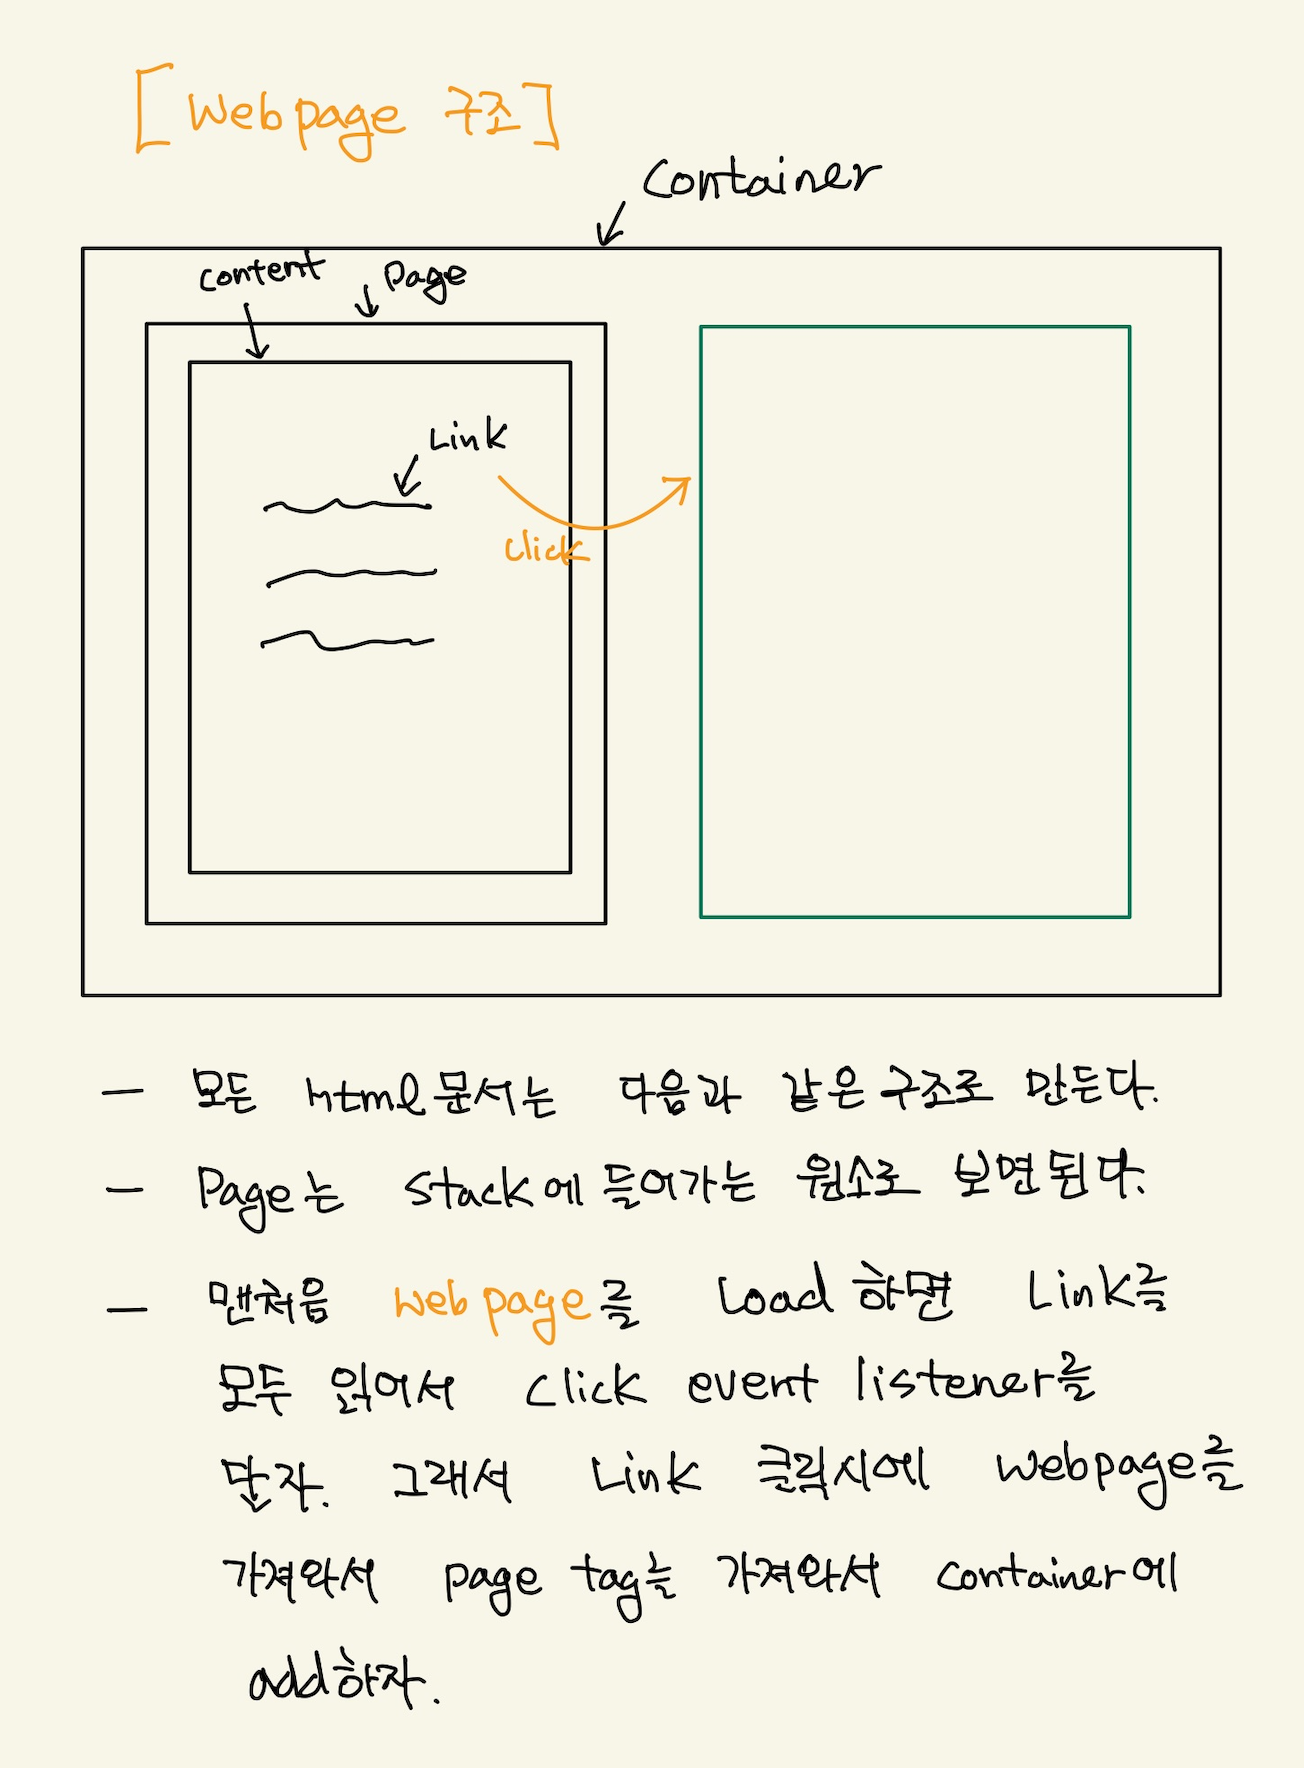 [Webpage 구조]
Container
content
Page
Link
click
- 모든 html문서는 다음과 같은 구조로 만든다.
- Page는 stack에 들어가는 원소로 보면된다.
- 맨처음 webpage를 Load하면 Link를
모두 읽어서 click event listener를
달자. 그래서 Link 클릭시에 webpage를
가져와서 page tag를 가져와서 container에
add하자.